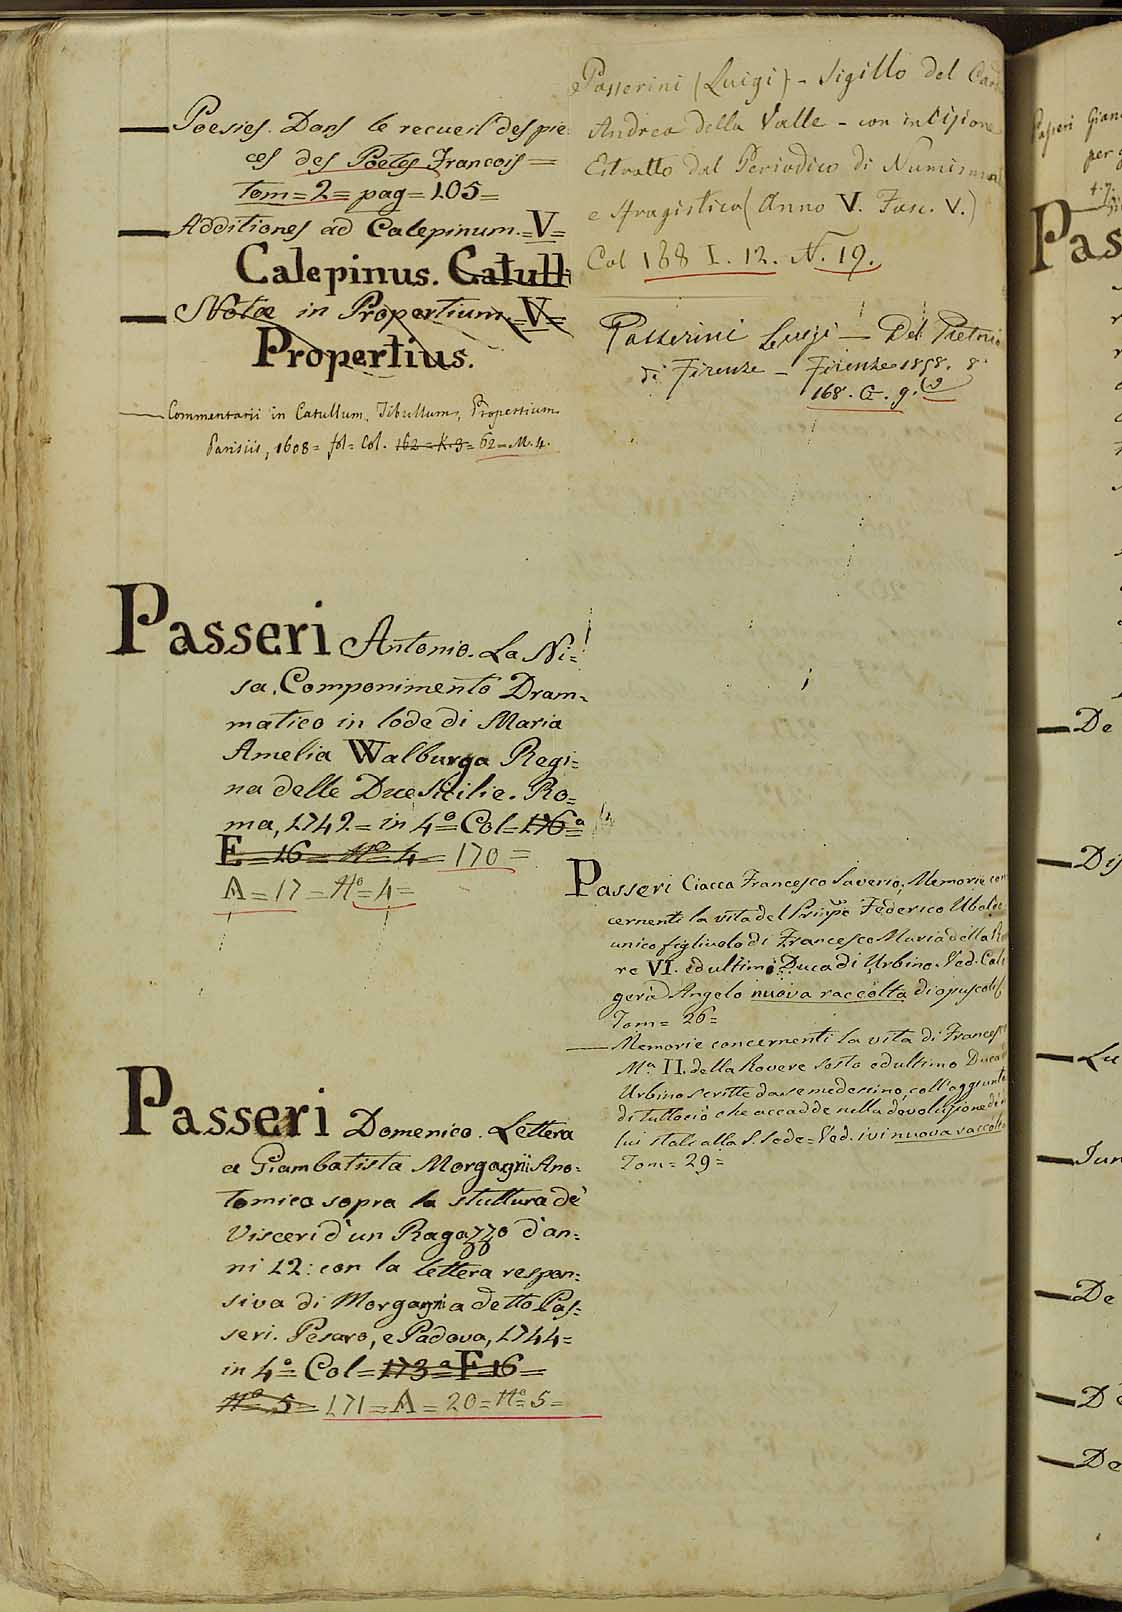 Poesies. Dans le recueil des pie=
ces des Poetes François =
tom = 2 = pag = 105 =
Additiones ad Calepinum. = V =
Calepinus. Catull
Notæ in Propertium. = V =
Propertius.
Commentarii in Catullum, Tibullum, Propertium
Parisiis, 1608 = fol = Col. 162 = K. 3 = 62 = M. 4.
Passeri Antonio. La Ni=
sa, Componimento Dram=
matico in lode di Maria
Amelia Walburga Regi=
na delle Due Sicilie. Ro=
ma, 1742 = in 4.º = Col = 176ª
E = 16 = Nº 4 = 170 =
A = 17 = Nº = 4 =
Passeri Domenico. Lettera
a Giambatista Morgagni Ano=
tomico sopra la stuttura de'
Visceri d'un Ragazzo d'an=
ni 12: con la lettera respon=
siva di Morgagni a detto Pas=
seri. Pesaro, e Padova, 1744 =
in 4.º = Col = 173ª = F 16 =
Nº 5 = 171 = A = 20 = Nº 5 =
Passerini (Luigi) - Sigillo del Card
Andrea della Valle - con incisione
Estratto dal Periodico di Numismat
e Sfragistica (Anno V. Fasc. V.)
Col 168 I. 12. N. 19.
Passerini Luigi — Del Pretorio
di Firenze — Firenze 1858. 8º
168. G. 9. (2
Passeri Ciacca Francesco Saverio, Memorie con
cernenti la vita del Prinpe Federico Ubaldo
unico figliuolo di Francesco Maria della Ro
re VI. ed ultimo Duca di Urbino. Ved. Calo
gerà Angelo nuova raccolta di opuscoli
Tom = 26 =
Memorie concernenti la vita di Frances
Mª II. della Rovere sesto ed ultimo Duca
Urbino scritte da se medesimo, coll' aggiunta
di tuttociò che accadde nella devoluzione di
lui stati alla S. Sede = Ved. ivi nuova raccolta
Tom = 29 =
Passeri Gian
per
4. 7.
Pas
De
Dis
Lu
Jun
De
De
De